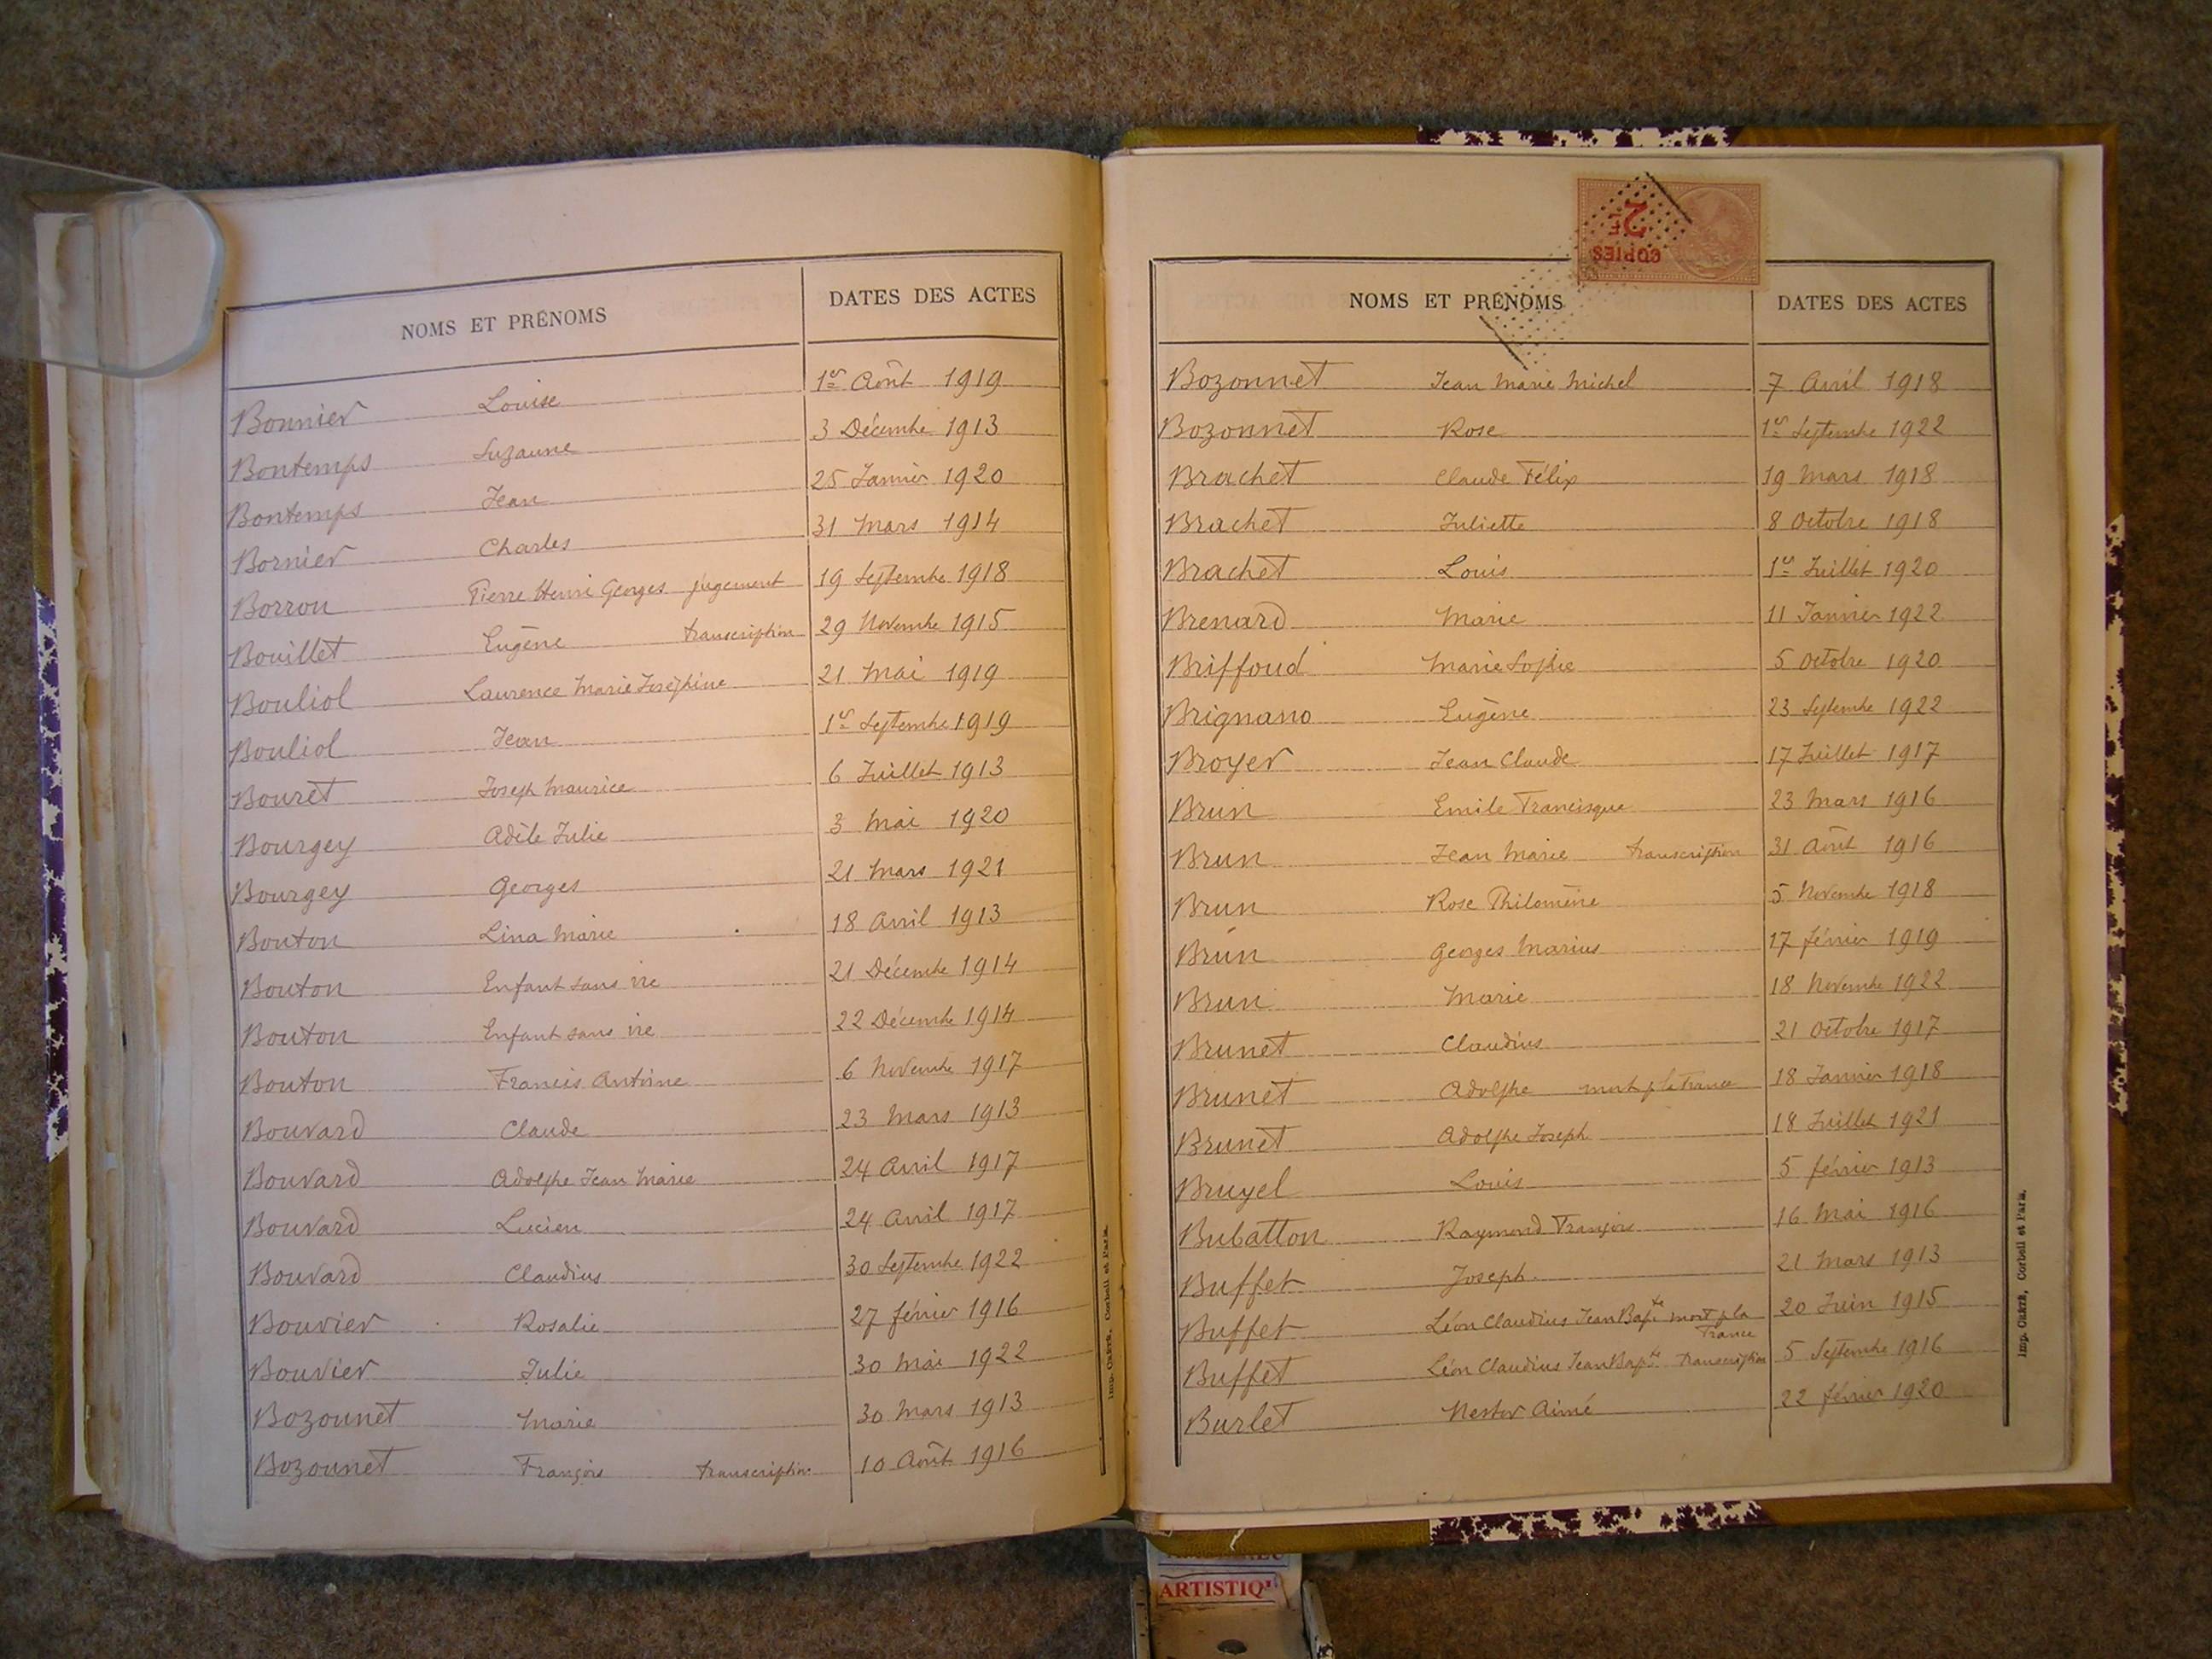 NOMS ET PRÉNOMS DATES DES ACTES
Bonnier Louise 1er Août 1919
Bontemps Suzanne 3 Décembre 1913
Bontemps Jean 25 Janvier 1920
Bornier Charles 31 Mars 1914
Borron Pierre Henri Georges jugement 19 Septembre 1918
Bouillet Eugène transcription 29 Novembre 1915
Bouliol Laurence Marie Joséphine 21 Mai 1919
Bouliol Jean 1er Septembre 1919
Bouret Joseph Maurice 6 Juillet 1913
Bourgey Adèle Julie 3 Mai 1920
Bourgey Georges 21 Mars 1921
Bouton Lina Marie 18 Avril 1913
Bouton Enfant sans vie 21 Décembre 1914
Bouton Enfant sans vie 22 Décembre 1914
Bouton Francis Antoine 6 Novembre 1917
Bouvard Claude 23 Mars 1913
Bouvard Adolphe Jean Marie 24 Avril 1917
Bouvard Lucien 24 Avril 1917
Bouvard Claudius 30 Septembre 1922
Bouvier Rosalie 27 février 1916
Bouvier Julie 30 Mai 1922
Bozonnet Marie 30 Mars 1913
Bozonnet François transcription 10 Août 1916
Imp. Crété, Corbeil et Paris.
COPIES
2F
NOMS ET PRÉNOMS DATES DES ACTES
Bozonnet Jean Marie Michel 7 Avril 1918
Bozonnet Rose 1er Septembre 1922
Brachet Claude Félix 19 Mars 1918
Brachet Juliette 8 Octobre 1918
Brachet Louis 1er Juillet 1920
Brenard Marie 11 Janvier 1922
Briffoud Marie Sophie 5 Octobre 1920
Brignano Eugène 23 Septembre 1922
Broyer Jean Claude 17 Juillet 1917
Brun Emile Francisque 23 Mars 1916
Brun Jean Marie transcription 31 Août 1916
Brun Rose Philomène 5 Novembre 1918
Brun Georges Marius 17 février 1919
Brun Marie 18 Novembre 1922
Brunet Claudius 21 Octobre 1917
Brunet Adolphe mort p la France 18 Janvier 1918
Brunet Adolphe Joseph 18 Juillet 1921
Bruyel Louis 5 février 1913
Bubatton Raymond François 16 Mai 1916
Buffet Joseph 21 Mars 1913
Buffet Léon Claudius Jean Bapte mort p la France 20 Juin 1915
Buffet Léon Claudius Jean Bapte transcription 5 Septembre 1916
Burlet Nestor Aimé 22 février 1920
Imp. Crété, Corbeil et Paris.
ARTISTIQ